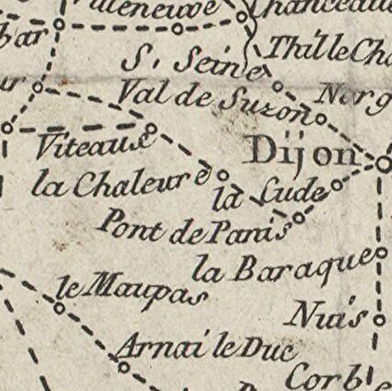 Villeneuve
Chanceaux
bar
S. Seine
Thil le Cha
ur
Val de Suzon
Norg
Viteaux
Dijon
la Chaleure
la Cude
Pont de Panis
la Baraque
le Maupas
Nuis
Arnai le Duc
Corb